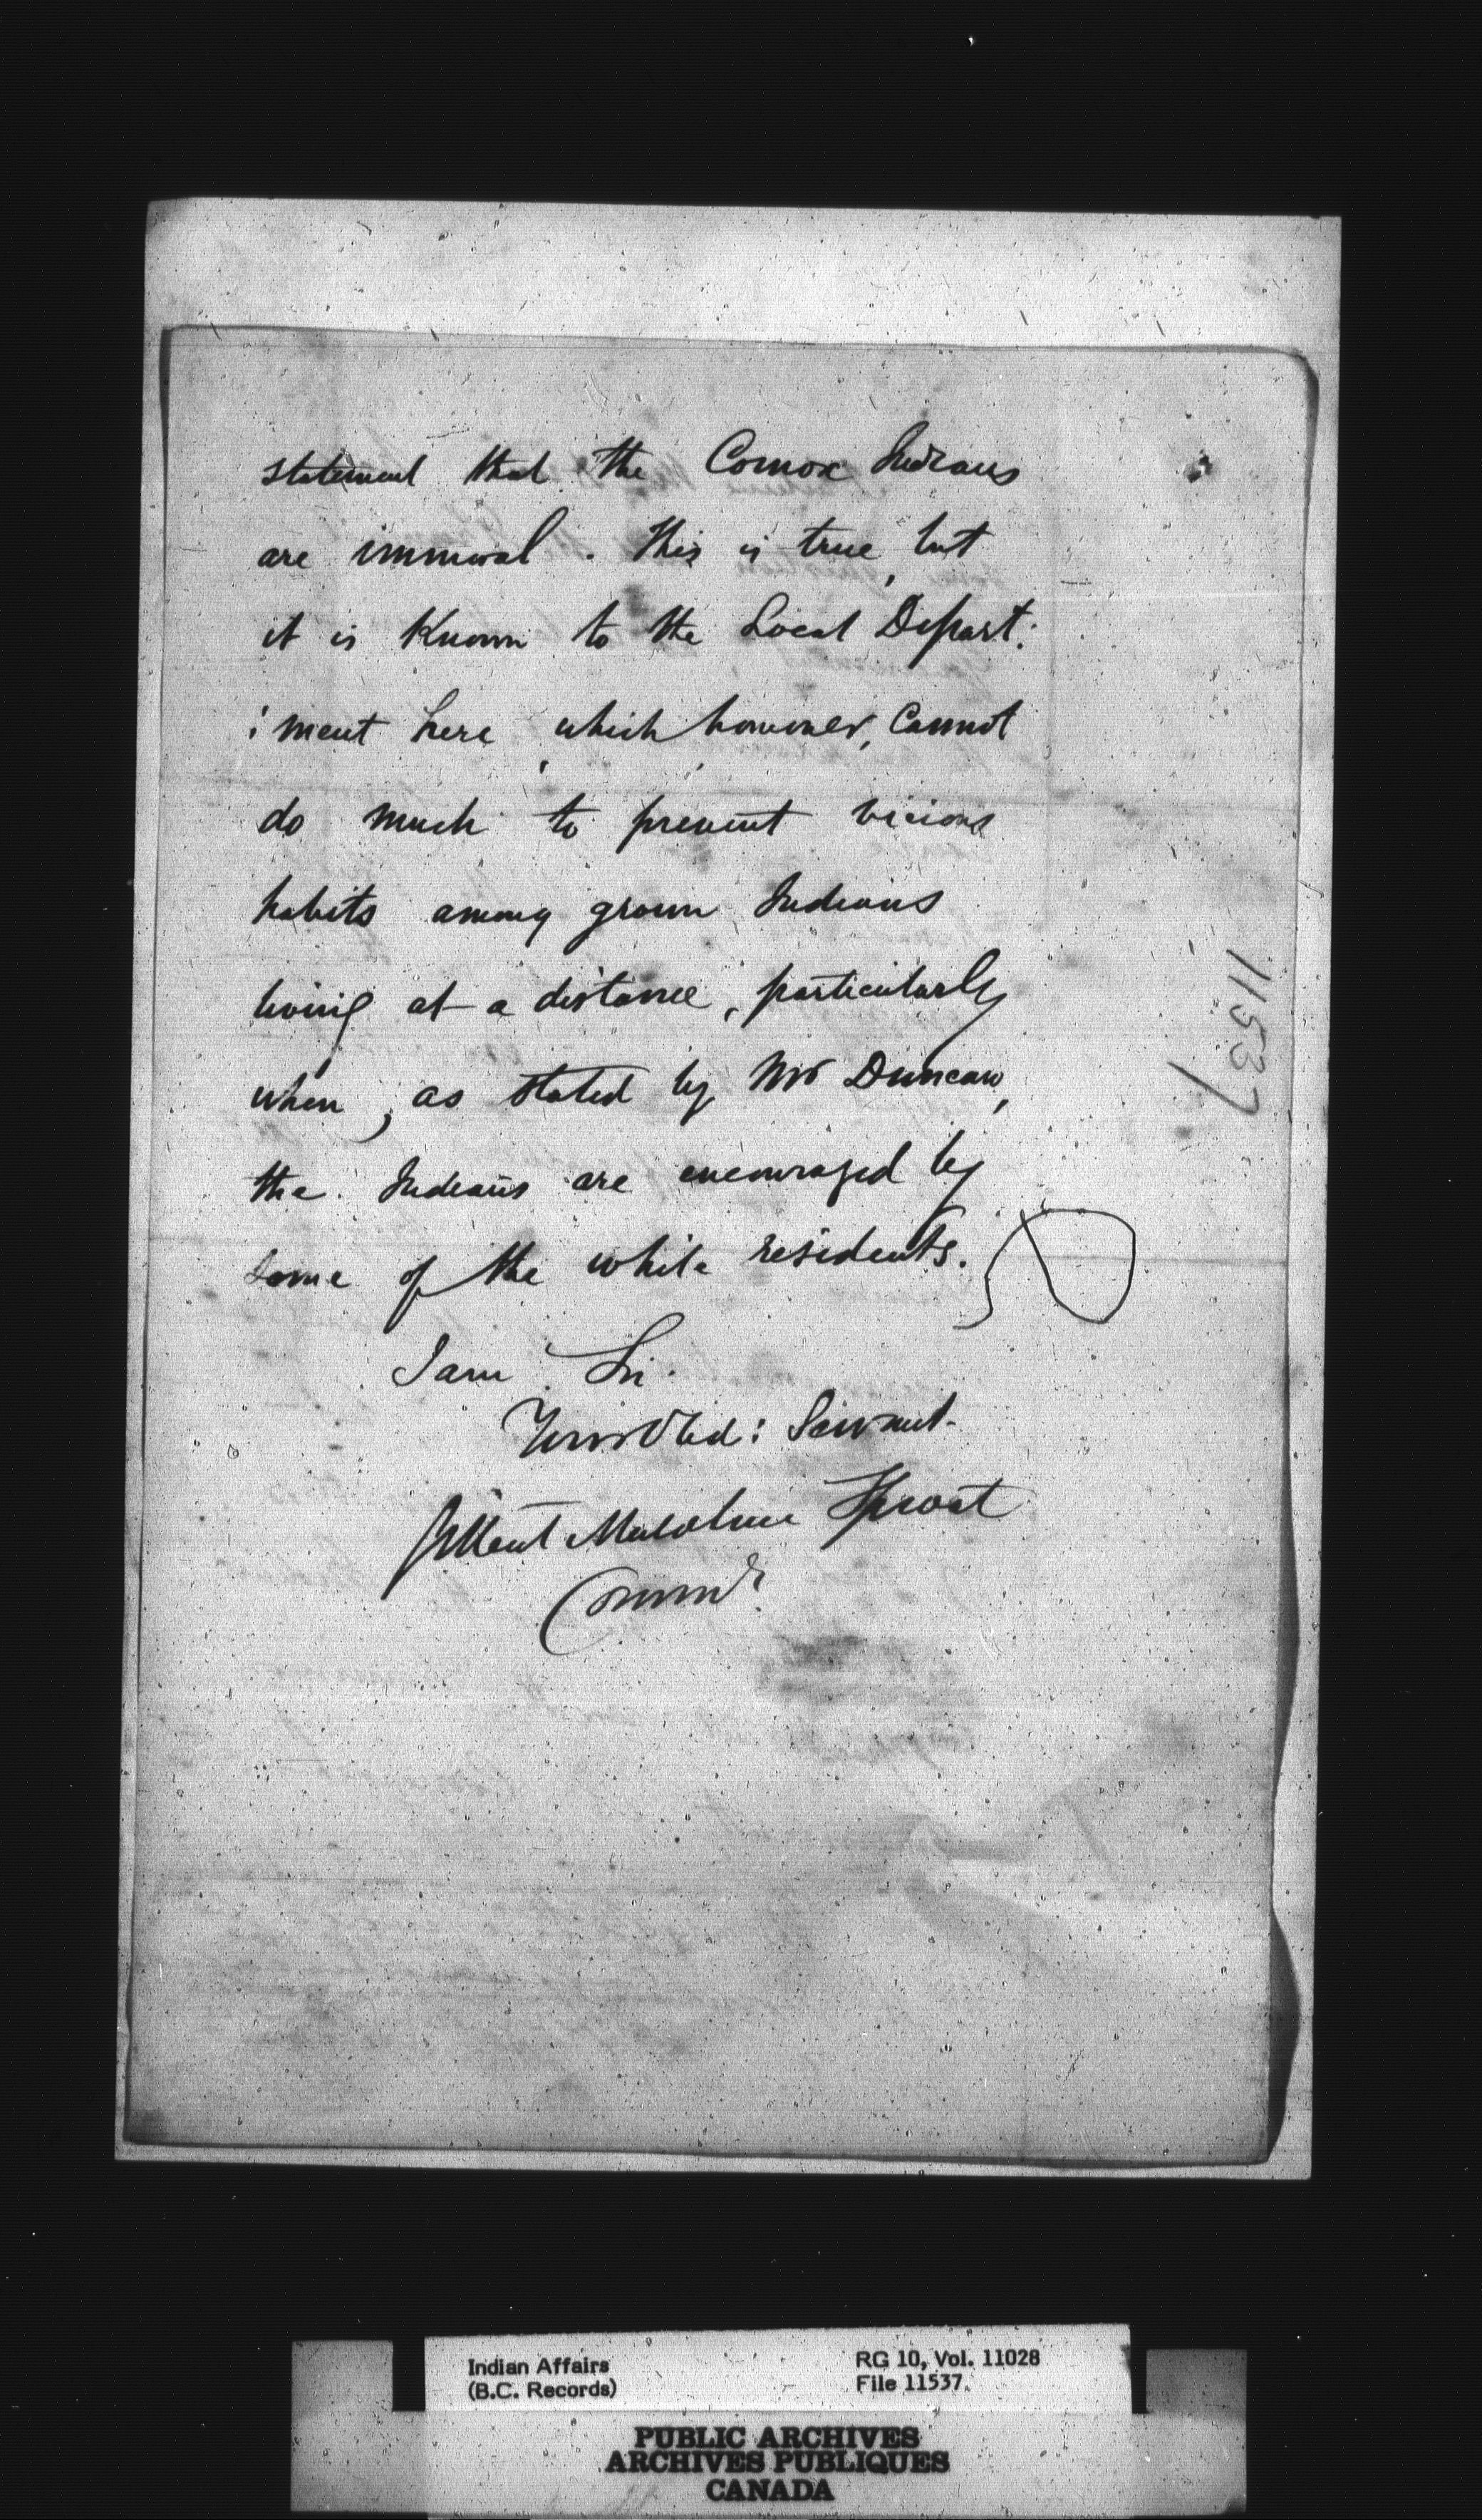 statement that the Comox Indians
are immoral. This is true, but
it is Known to the Local Depart:
:ment here, which however, Cannot
do much to prevent vicious
habits among grown Indians
living at a distance, particularly
when, as stated by Mr Duncan,
the Indians are encouraged by
some of the white residents.
I am Sir.
Your Obed: Servant.
Gilbert Malcolm Sproat
Commr
11537
Indian Affairs
(B.C. Records)
RG 10, Vol. 11028
File 11537.
PUBLIC ARCHIVES
ARCHIVES PUBLIQUES
CANADA